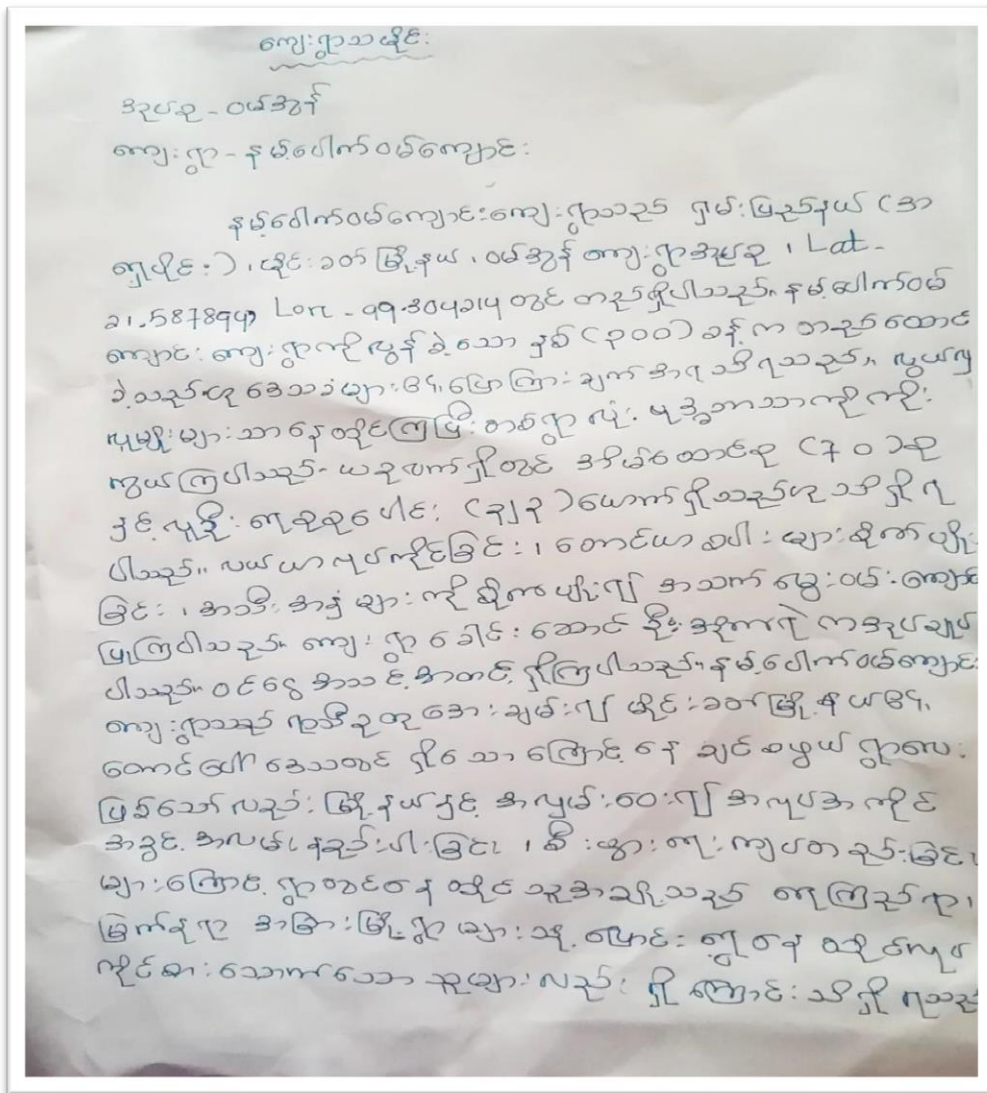 ကျေးရွာသမိုင်း
အုပ်စု - ဝမ်အွန်
ကျေးရွာ - နမ့်ပေါက်ဝမ်ကျောင်း
နမ့်ပေါက်ဝမ်ကျောင်းကျေးရွာသည် ရှမ်းပြည်နယ် (အ
ရှေ့ပိုင်း)၊ မိုင်းခတ်မြို့နယ်၊ ဝမ်အွန်ကျေးရွာအုပ်စု၊ Lat -
21.587894, Lon - 99.304214 တွင် တည်ရှိပါသည်။ နမ့်ပေါက်ဝမ်
ကျောင်းကျေးရွာကို လွန်ခဲ့သော နှစ် (၃၀၀) ခန့်က တည်ထောင်
ခဲ့သည်ဟု ဒေသခံများ၏ ပြောကြားချက်အရ သိရသည်။ လွယ်လ
လူမျိုးများသာ နေထိုင်ကြပြီး တစ်ရွာလုံး ဗုဒ္ဓဘာသာကိုကိုး
ကွယ်ကြပါသည်။ ယခုလက်ရှိတွင် အိမ်ထောင်စု (70) စု
နှင့် လူဦးရေစုစုပေါင်း (၃၂၃) ယောက်ရှိသည်ဟု သိရှိရ
ပါသည်။ လယ်ယာလုပ်ကိုင်ခြင်း၊ တောင်ယာစပါးများစိုက်ပျိုး
ခြင်း၊ အသီးအနှံများကို စိုက်ပျိုး၍ အသက်မွေးဝမ်းကျောင်း
ပြုကြပါသည်။ ကျေးရွာခေါင်းဆောင် ဦး ကအုပ်ချုပ်
ပါသည်။ ဝင်ငွေ အသင့်အတင့် ရှိကြပါသည်။ နမ့်ပေါက်ဝမ်ကျောင်း
ကျေးရွာသည် ရာသီဥတု အေးချမ်း၍ မိုင်းခတ်မြို့နယ်၏
တောင်ပေါ်ဒေသတွင် ရှိသောကြောင့် နေချင်စဖွယ် ရွာလေး
ဖြစ်သော်လည်း မြို့နယ်နှင့် အလှမ်းဝေး၍ အလုပ်အကိုင်
အခွင့်အလမ်း နည်းပါးခြင်း၊ စီးပွားရေးကျပ်တည်းခြင်း
များကြောင့် ရွာတွင်နေထိုင်သူအချို့သည် ရေကြည်ရာ၊
မြက်နုရာ အခြားမြို့ရွာများသို့ ပြောင်းရွှေ့နေထိုင်လုပ်
ကိုင်စားသောက်သော သူများလည်း ရှိကြောင်း သိရှိရသည်